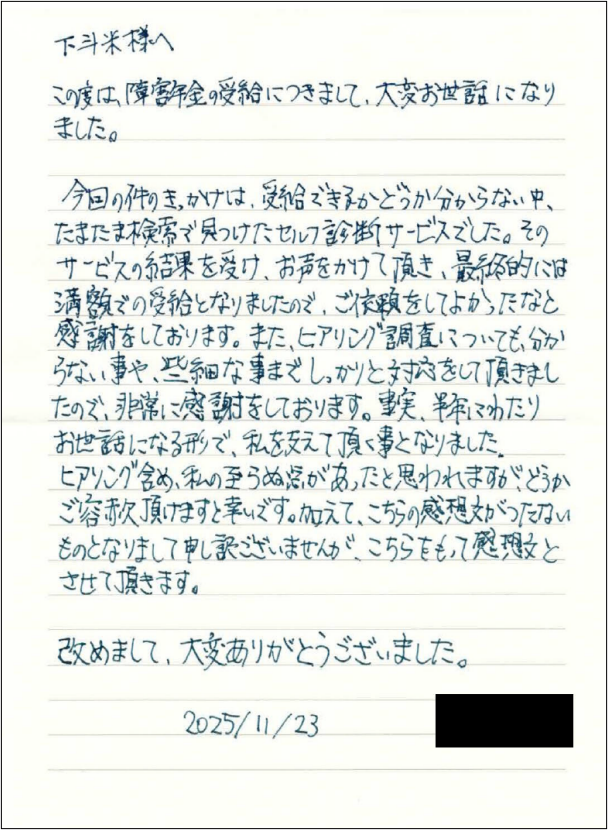 下斗米様へ
この度は、障害年金の受給につきまして、大変お世話になり
ました。
今回の件のきっかけは、受給できるかどうか分からない中、
たまたま検索で見つけたセルフ診断サービスでした。その
サービスの結果を受け、お声をかけて頂き、最終的には
満額での受給となりましたので、ご依頼をしてよかったなと
感謝をしております。また、ヒアリング調査についても、分か
らない事や、些細な事までしっかりと対応をして頂きまし
たので、非常に感謝をしております。事実、半年にわたり
お世話になる形で、私を支えて頂く事となりました。
ヒアリング含め、私の至らぬ点があったと思われますが、どうか
ご容赦頂けますと幸いです。加えて、こちらの感想文がつたない
ものとなりまして申し訳ございませんが、こちらをもって感想文と
させて頂きます。
改めまして、大変ありがとうございました。
2025/11/23